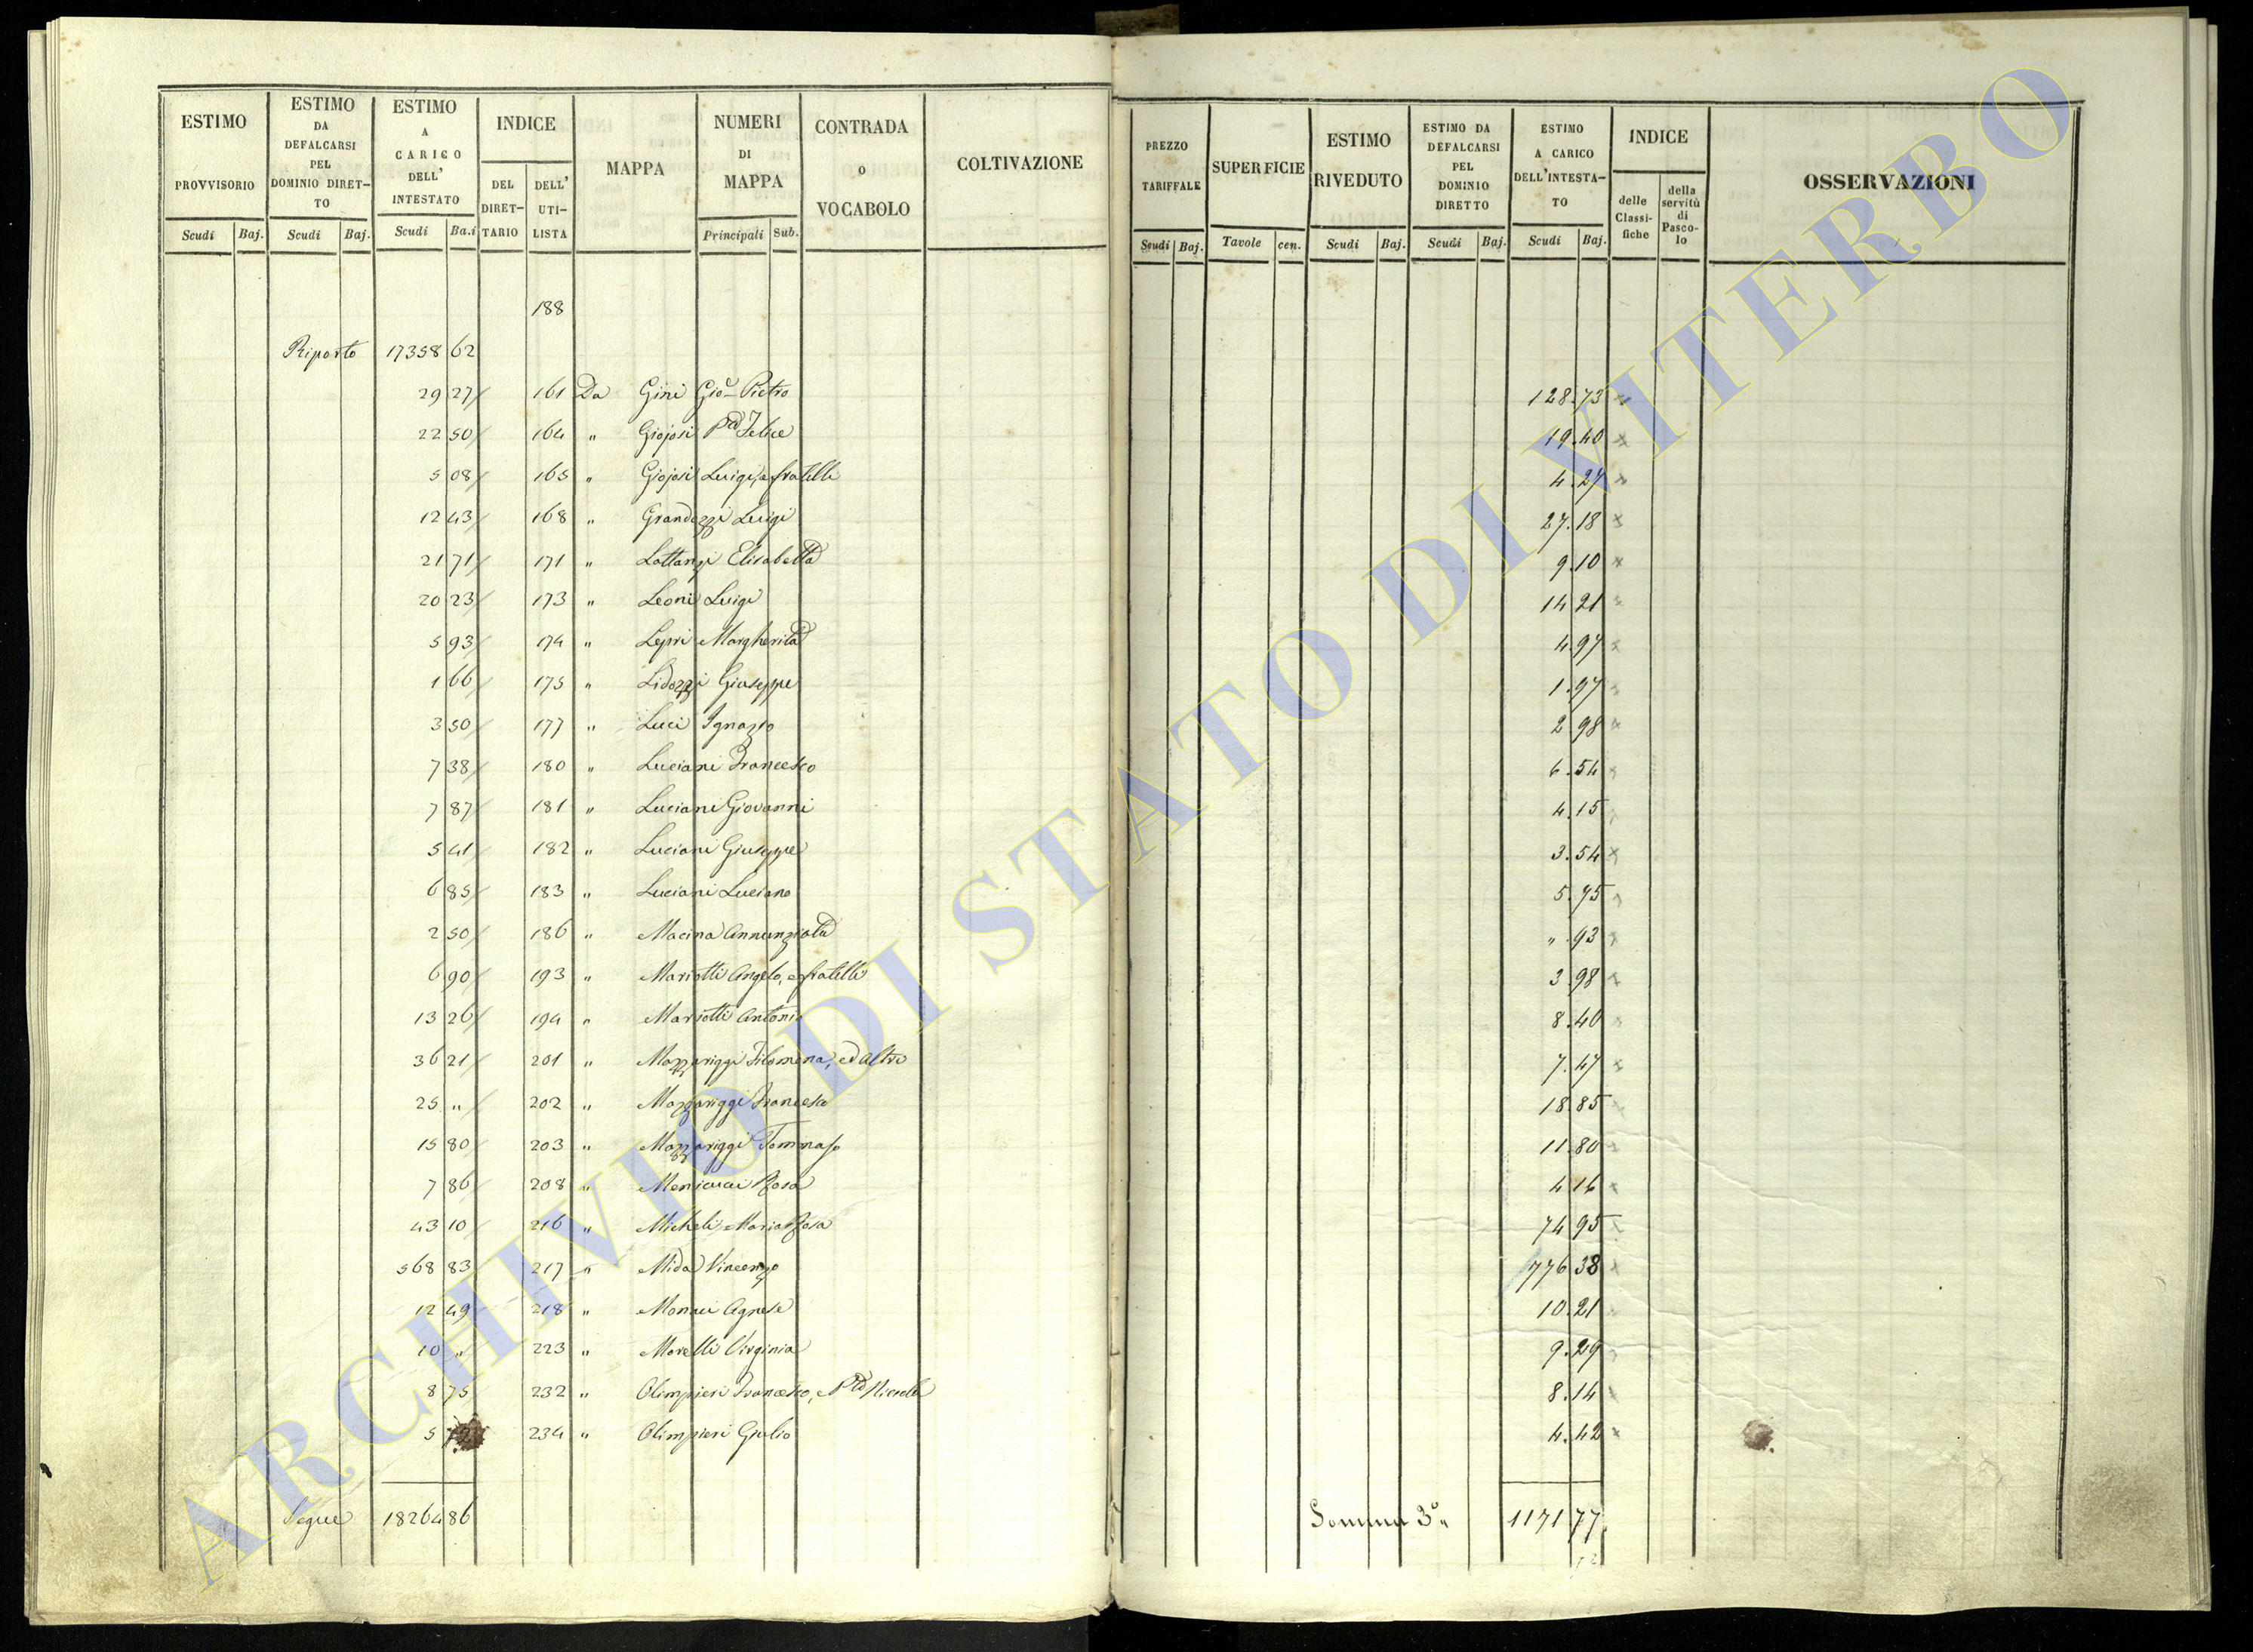 ESTIMO PROVVISORIO Scudi Baj.
ESTIMO DA DEFALCARSI PEL DOMINIO DIRETTO Scudi Baj.
ESTIMO A CARICO DELL' INTESTATO Scudi Ba.i
INDICE DEL DIRETTARIO DELL' UTILISTA
MAPPA
NUMERI DI MAPPA Principali Sub.
CONTRADA o VOCABOLO
COLTIVAZIONE
PREZZO TARIFFALE Scudi Baj.
SUPERFICIE Tavole cen.
ESTIMO RIVEDUTO Scudi Baj.
ESTIMO DA DEFALCARSI PEL DOMINIO DIRETTO Scudi Baj.
ESTIMO A CARICO DELL'INTESTATO Scudi Baj.
INDICE delle Classifiche della servitù di Pascolo
OSSERVAZIONI
188
Riporto 17358 62
29 27 161 Da Gini Gio Pietro 128.73
22 50 164 " Giojosi Felice 19.40
5 08 165 " Giojosi Luigi, e fratelli 4.27
12 43 168 " Grandezzi Luigi 27.18
21 71 171 " Lattanzi Elisabetta 9.10
20 23 173 " Leoni Luigi 14 21
5 93 174 " Lepri Margherita 4.97
1 66 175 " Lidozzi Giuseppe 1.97
3 50 177 " Luci Ignazio 2 98
7 38 180 " Luciani Francesco 6.54
7 87 181 " Luciani Giovanni 4.15
5 41 182 " Luciani Giuseppe 3.54
6 85 183 " Luciani Luciano 5.75
2 50 186 " Macina Annunziata " .93
6 90 193 " Mariotti Angelo, e fratelli 3.98
13 26 194 " Mariotti Antonio 8.40
36 21 201 " Mazzariggi Filomena, ed altri 7.47
25 " 202 " Mazzariggi Francesco 18.85
15 80 203 " Mazzariggi Tommaso 11.80
7 86 208 " Menicucci Rosa 4 16
43 10 216 " Micheli Maria Rosa 74 95
568 83 217 " Mida Vincenzo 776 38
12 49 218 " Monaci Agnese 10.21
10 " 223 " Morelli Virginia 9.29
8 75 232 " Olimpieri Francesco, e 8.14
5 234 " Olimpieri Giulio 4.42
Segue 18264 86 Somma 3a 1171 77
ARCHIVIO DI STATO DI VITERBO